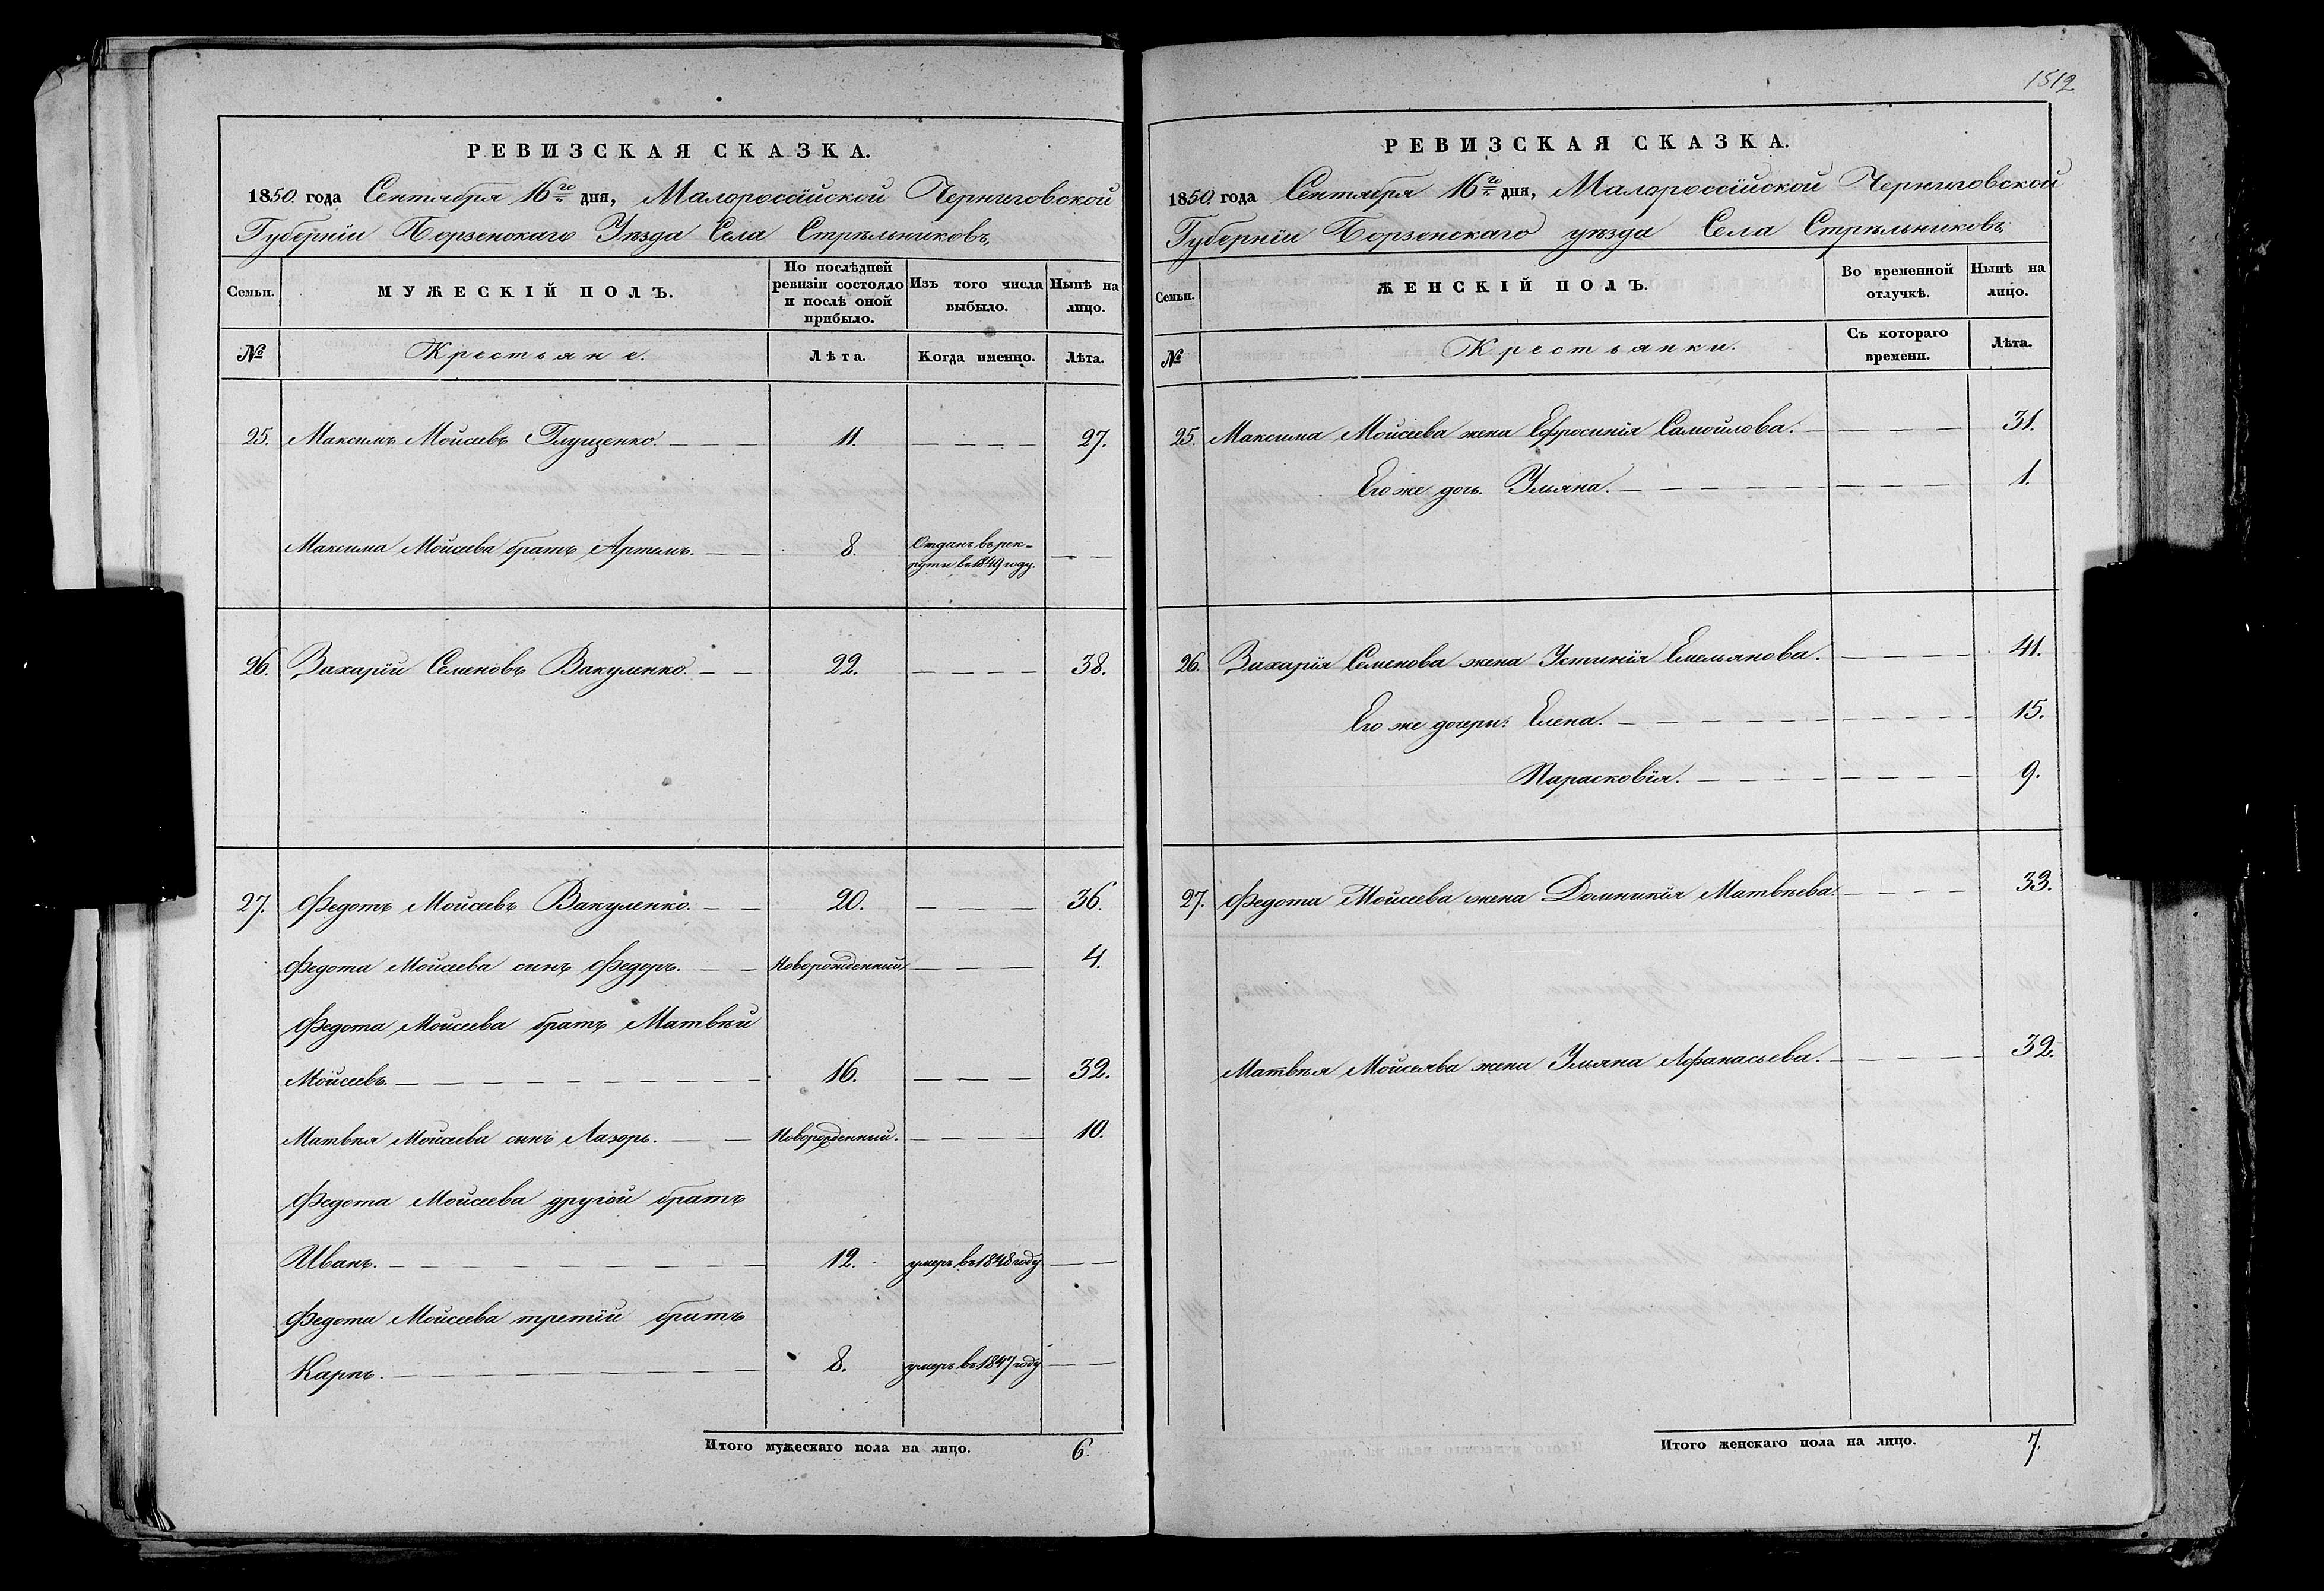 РЕВИЗСКАЯ СКАЗКА.
1850. года Сентября 16го дня, Малороссійской Черниговской
Губерніи Борзенскаго Уѣзда Села Стрѣльниковъ
Семьи. МУЖЕСКІЙ ПОЛЪ. По послѣдней ревизіи состояло и послѣ оной прибыло. Изъ того числа выбыло. Нынѣ на лицо.
№ Крестьяне. Лѣта. Когда именно. Лѣта.
25. Максимъ Мойсеевъ Глущенко. 11. 27.
Максима Мойсеева братъ Артемъ. 8. Отданъ въ рек-
рути въ 1849 году.
26. Захарій Семеновъ Вакуленко. 22. 38.
27. Федотъ Мойсеевъ Вакуленко. 20. 36.
Федота Мойсеева сынъ Федоръ. Новорожденный 4.
Федота Мойсеева братъ Матвѣй
Мойсеевъ. 16. 32.
Матвѣя Мойсеева сынъ Лазорь. Новорожденный. 10.
Федота Мойсеева другой братъ
Иванъ. 12. умеръ въ 1848 году
Федота Мойсеева третій братъ
Карпъ. 8. умеръ въ 1847 году
Итого мужескаго пола на лицо. 6.
1512
РЕВИЗСКАЯ СКАЗКА.
1850 года Сентября 16го дня, Малороссійской Черниговской
Губерніи Борзенскаго уѣзда Села Стрѣльниковъ
Семьи. ЖЕНСКІЙ ПОЛЪ. Во временной отлучкѣ. Нынѣ на лицо.
№ Крестьянки. Съ котораго времени. Лѣта.
25. Максима Мойсеева жена Ефросинія Самойлова. 31.
Его же дочь. Ульяна. 1.
26. Захарія Семенова жена Устинія Емельянова. 41.
Его же дочери: Елена. 15.
Парасковія. 9.
27. Федота Мойсеева жена Домникія Матвѣева. 33.
Матвѣя Мойсеява жена Ульяна Афанасьева. 32.
Итого женскаго пола на лицо. 7.